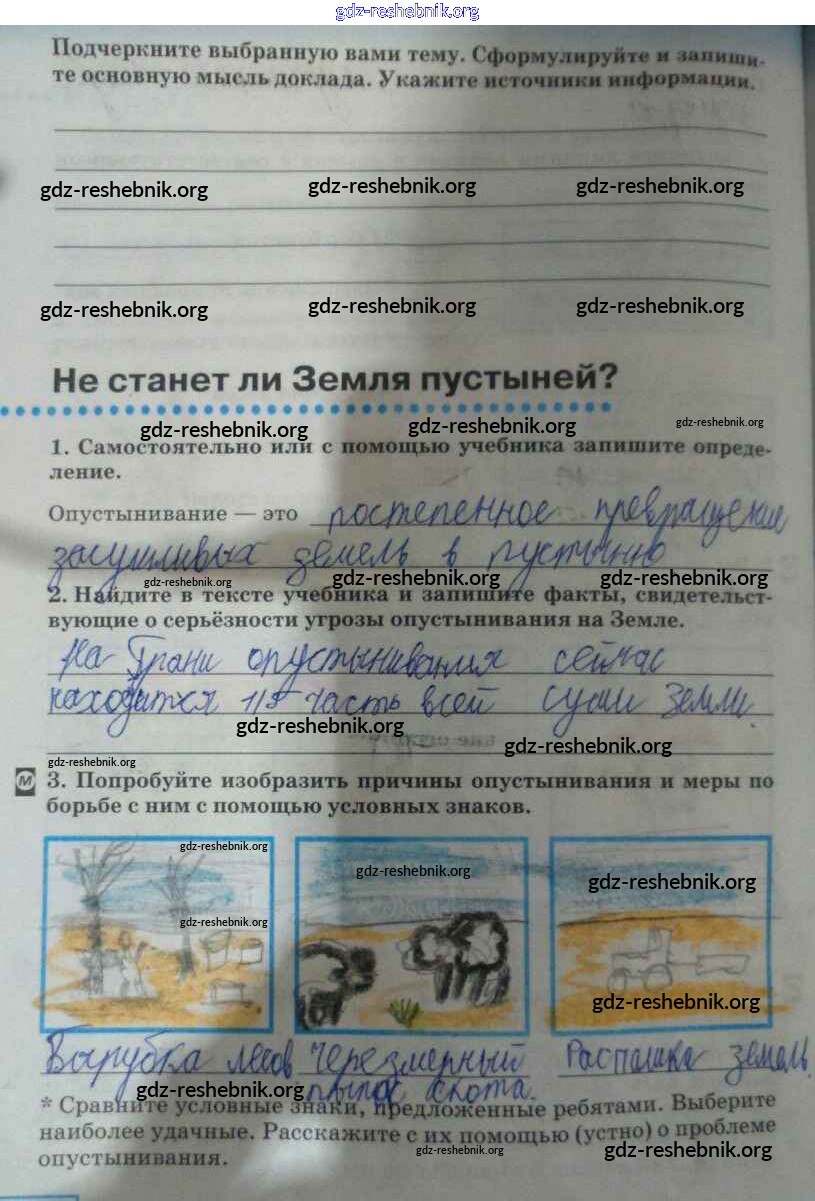 gdz-reshebnik.org
Подчеркните выбранную вами тему. Сформулируйте и запиши-
те основную мысль доклада. Укажите источники информации.
gdz-reshebnik.org gdz-reshebnik.org gdz-reshebnik.org
gdz-reshebnik.org gdz-reshebnik.org gdz-reshebnik.org
Не станет ли Земля пустыней?
gdz-reshebnik.org gdz-reshebnik.org gdz-reshebnik.org
1. Самостоятельно или с помощью учебника запишите опреде-
ление.
Опустынивание — это постепенное превращение
засушливых земель в пустынню
gdz-reshebnik.org gdz-reshebnik.org gdz-reshebnik.org
2. Найдите в тексте учебника и запишите факты, свидетельст-
вующие о серьёзности угрозы опустынивания на Земле.
На Грани опустынивания сейчас
находится 1/5 часть всей суши Земли.
gdz-reshebnik.org gdz-reshebnik.org
gdz-reshebnik.org
М 3. Попробуйте изобразить причины опустынивания и меры по
борьбе с ним с помощью условных знаков.
gdz-reshebnik.org gdz-reshebnik.org gdz-reshebnik.org
gdz-reshebnik.org gdz-reshebnik.org
Вырубка лесов Черезмерный Распашка земель
скота.
gdz-reshebnik.org
* Сравните условные знаки, предложенные ребятами. Выберите
наиболее удачные. Расскажите с их помощью (устно) о проблеме
gdz-reshebnik.org gdz-reshebnik.org
опустынивания.